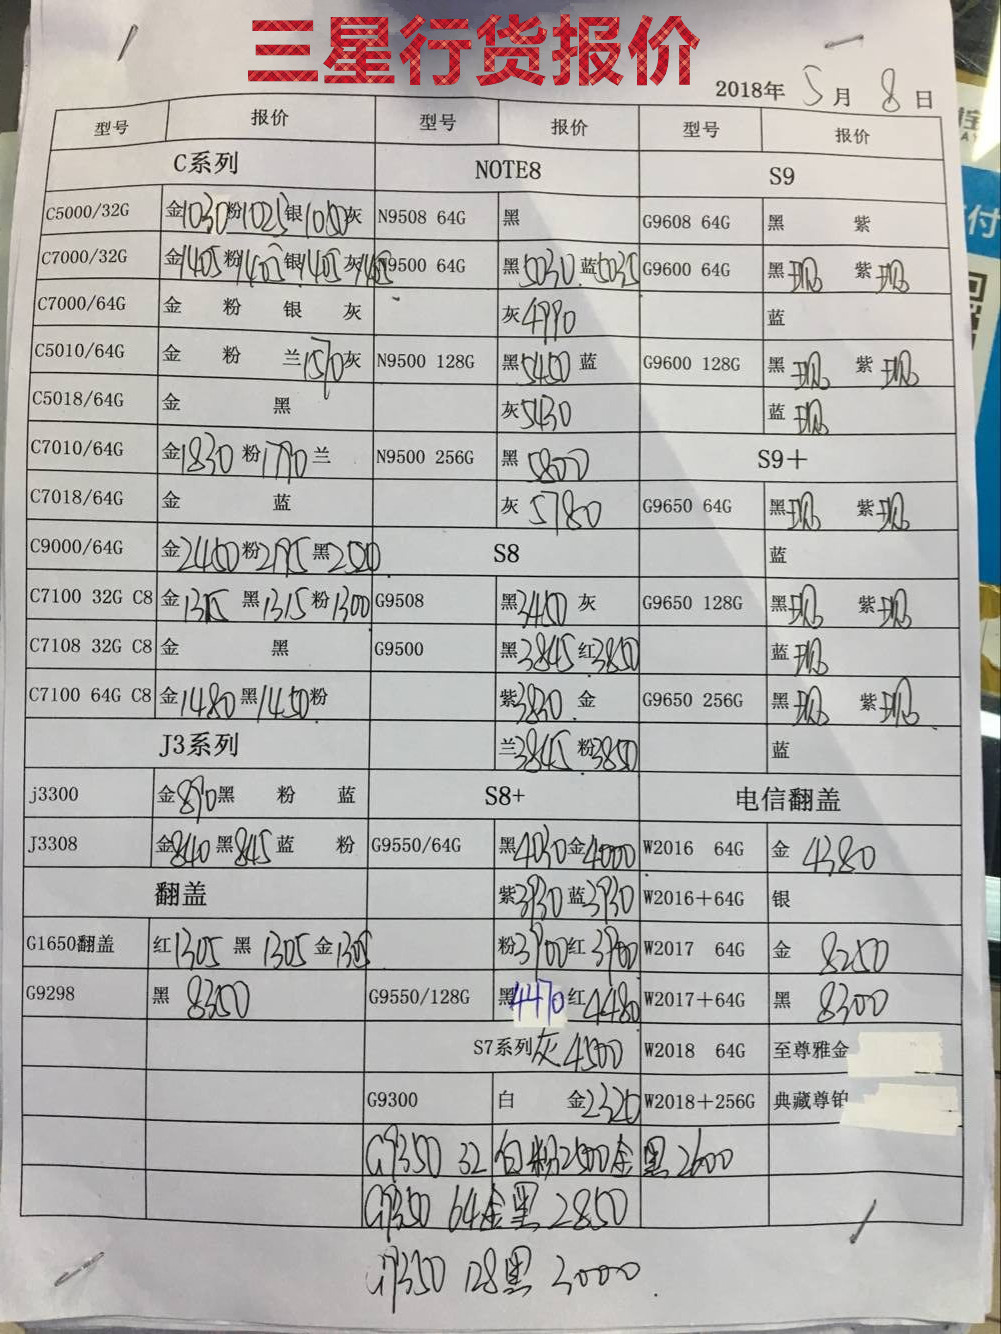 三星行货报价
2018年 5月 8日
型号 报价 型号 报价 型号 报价
C系列 NOTE8 S9
C5000/32G 金1030 粉1025 银1050 灰 N9508 64G 黑 G9608 64G 黑 紫
C7000/32G 金1405 粉1405 银1405 灰1405 N9500 64G 黑5030 蓝5035 G9600 64G 黑现 紫现
C7000/64G 金 粉 银 灰 灰4990 蓝
C5010/64G 金 粉 兰1570 灰 N9500 128G 黑5450 蓝 G9600 128G 黑现 紫现
C5018/64G 金 黑 灰5430 蓝现
C7010/64G 金1830 粉1790 兰 N9500 256G 黑5800 S9+
C7018/64G 金 蓝 灰5780 G9650 64G 黑现 紫现
C9000/64G 金2450 粉2195 黑2500 S8 蓝
C7100 32G C8 金1315 黑1315 粉1300 G9508 黑3450 灰 G9650 128G 黑现 紫现
C7108 32G C8 金 黑 G9500 黑3845 红3850 蓝现
C7100 64G C8 金1480 黑1450 粉 紫3830 金 G9650 256G 黑现 紫现
J3系列 兰3845 粉3850 蓝
j3300 金890 黑 粉 蓝 S8+ 电信翻盖
J3308 金840 黑845 蓝 粉 G9550/64G 黑4030 金4000 W2016 64G 金4380
翻盖 紫3930 蓝3930 W2016+64G 银
G1650翻盖 红1305 黑1305 金1305 粉3900 红3900 W2017 64G 金8250
G9298 黑8300 G9550/128G 黑4470 红4480 W2017+64G 黑8300
S7系列 灰4500 W2018 64G 至尊雅金
G9300 白 金2320 W2018+256G 典藏尊铂
G9350 32 白粉2500金黑2600
G9350 64金黑2850
G9350 128黑3000